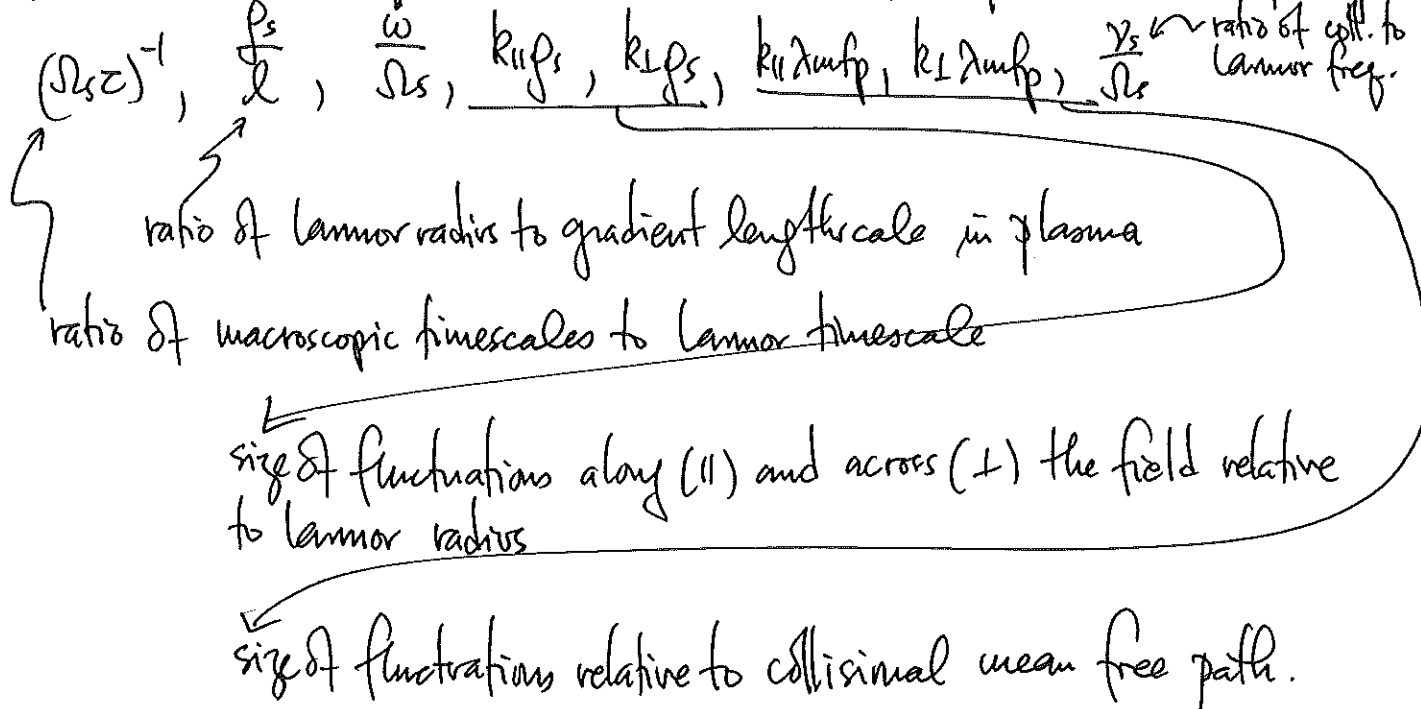 (Ωₛτ)⁻¹, ρₛ/l, ω/Ωₛ, k∥ρₛ, k⊥ρₛ, k∥λmfp, k⊥λmfp, νₛ/Ωₛ ratio of coll. to
Larmor freq.
ratio of Larmor radius to gradient lengthscale in plasma
ratio of macroscopic timescales to Larmor timescale
size of fluctuations along (∥) and across (⊥) the field relative
to Larmor radius
size of fluctuations relative to collisional mean free path.